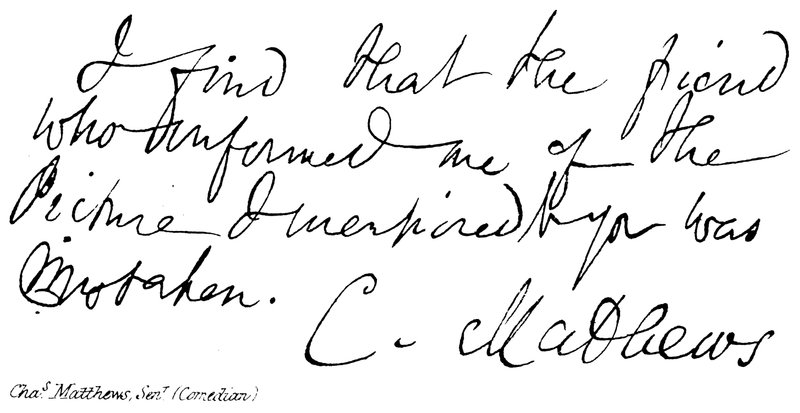 I find that the friend
who informed me of the
Picture I mentioned to you was
Mistaken.
C. Mathews
Chaˢ. Matthews, Senʳ. (Comedian)